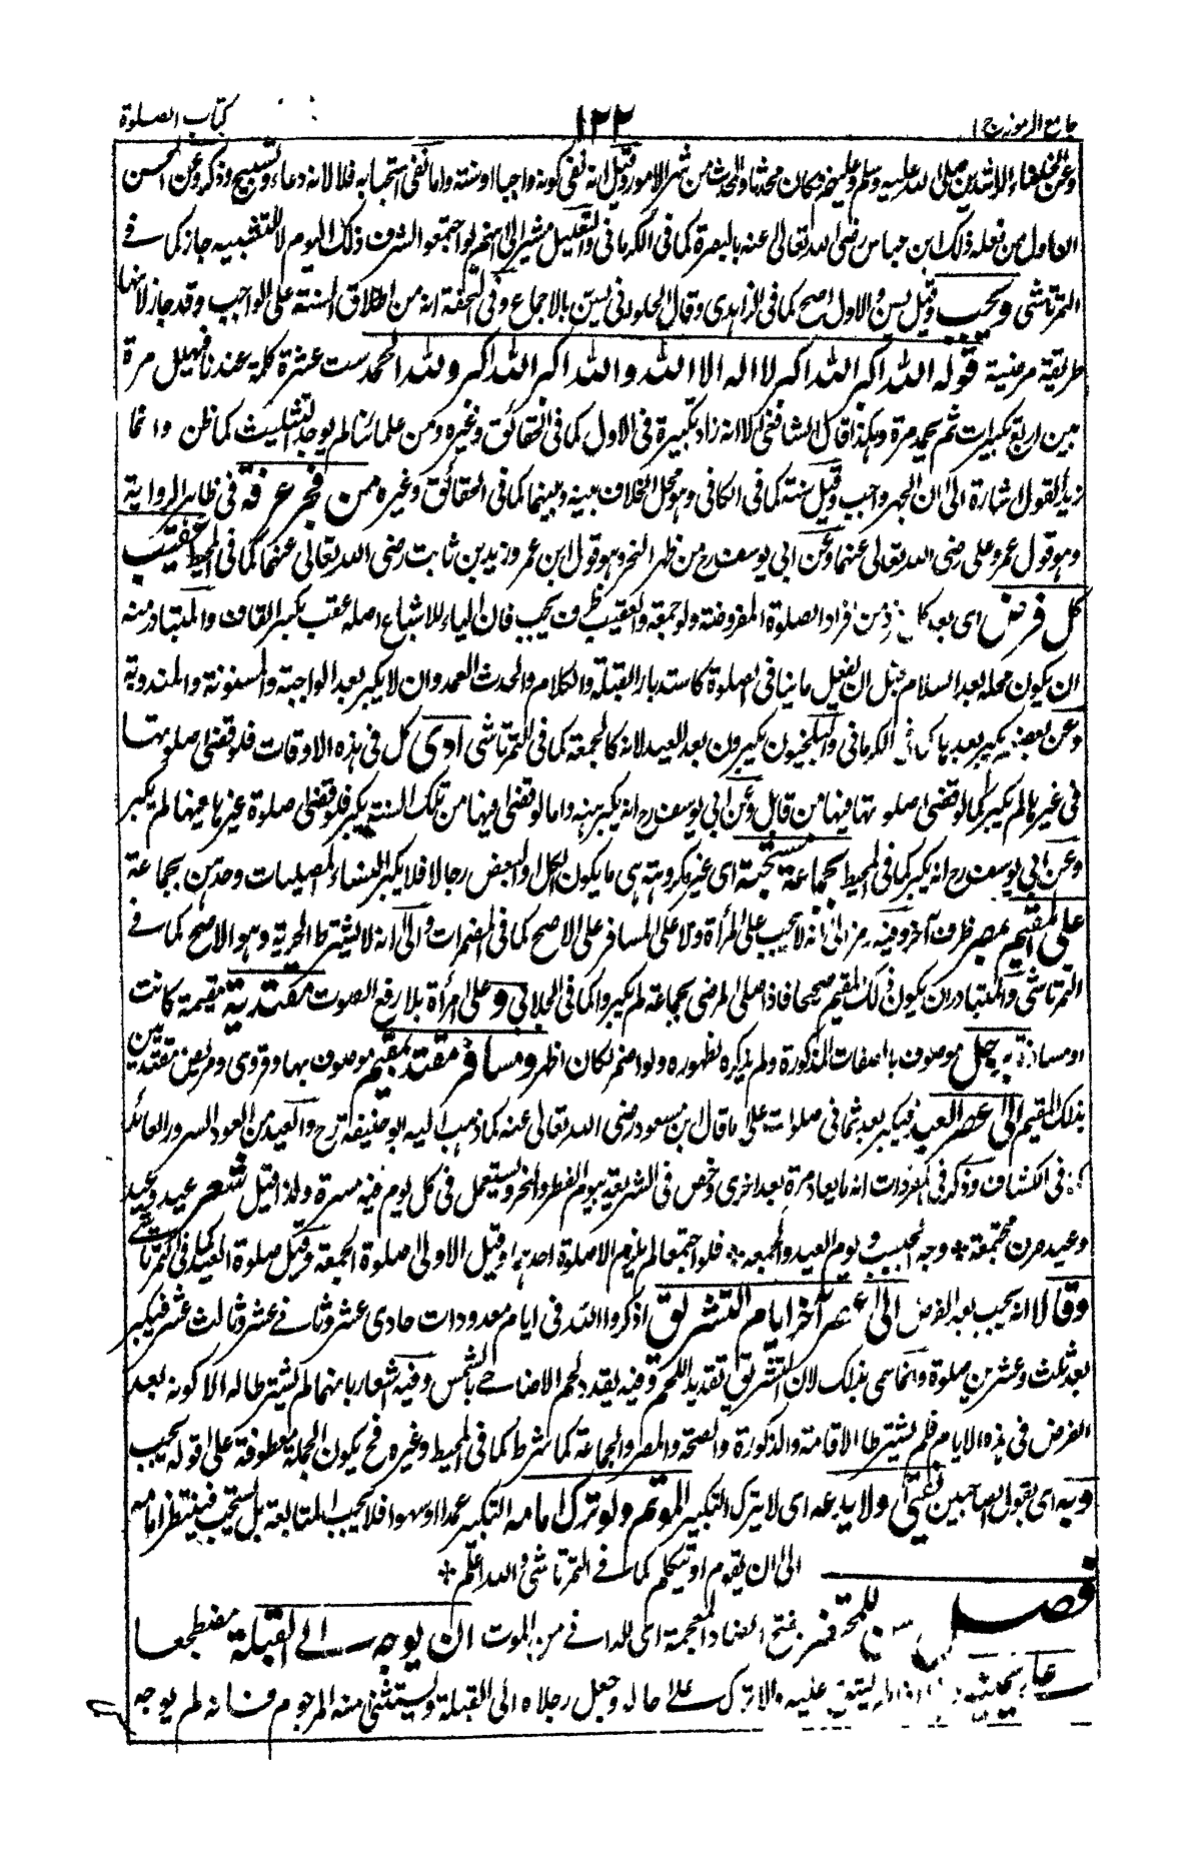 جامع الرموز ج ١
١٢٢
كتاب الصلوة
وعن الخلفاء الراشدين صلى الله عليه وسلم وعليهم وكان محدثا والمحدث من شر الامور وقيل انه نفى كونه واجبا او سنة واما نفى استحبابه فلا لانه دعاء وتسبيح وذكر وعن الحسن
ان اول من فعله ذلك ابن عباس رضى الله تعالى عنه بالبصرة كما فى الكرمانى والتعليل مشير الى انهم لو اجتمعوا لشرف ذلك اليوم لا للتشبيه جاز كما فى
التمرتاشى ويجب وقيل يسن والاول اصح كما فى الزاهدى وقال الحلوانى يسن بالاجماع وفى التحفة انه من اطلاق السنة على الواجب وقد جاز لانها
طريقة مرضية قوله الله اكبر الله اكبر لا اله الا الله والله اكبر الله اكبر ولله الحمد ست عشرة كلمة عندنا فيهلل مرة
بين اربع تكبيرات ثم يحمد مرة وهكذا قال الشافعى الا انه زاد تكبيرة فى الاول كما فى الحقائق وغيره ومن علمائنا لم يوجد التثليث كما ظن وانما
زيد القول اشارة الى ان الجهر واجب وقيل سنة كما فى الكافى وهو محل الخلاف بينه وبينهما كما فى الحقائق وغيره من فجر عرفة فى ظاهر الرواية
وهو قول عمر وعلى رضى الله تعالى عنهما وعن ابى يوسف رح من ظهر النحر وهو قول ابن عمر وزيد بن ثابت رضى الله تعالى عنهما كما فى المحيط عقيب
كل فرض اى بعد كل من افراد الصلوة المفروضة ولو جمعة والعقيب ظرف يجب فان الياء للاشباع اصله عقب بكسر القاف والمتبادر منه
ان يكون محله بعد السلام قبل ان يفعل ما ينافى الصلوة كاستدبار القبلة والكلام والحدث العمد وان لا يكبر بعد الواجبة والمسنونة والمندوبة
وعن بعضهم يكبر بعدها كما فى الكرمانى والبلخيون يكبرون بعد العيد لانه كالجمعة كما فى التمرتاشى ادى كل فى هذه الاوقات فلو قضى صلوتها
فى غيرها لم يكبر كما لو قضى صلوتها فيها من قابل وعن ابى يوسف رح انه يكبر هنه واما لو قضى فيها من تلك السنة يكبر فلو قضى صلوة غيرها فيها لم يكبر
وعن ابى يوسف رح انه يكبر كما فى المحيط بجماعة مستحبة اى غير مكروهة هى ما يكون الكل او البعض رجالا فلا يكبر النساء المصليات وحدهن بجماعة
على المقيم بمصر ظرف آخر وفيه رمز الى انه لا يجب على المرأة ولا على المسافر على الاصح كما فى المضمرات والى انه لا يشترط الحرية وهو الاصح كما فى
التمرتاشى والمتبادر ان يكون ذلك المقيم صحيحا فاذا صلى المرضى بجماعة لم يكبروا كما فى الجلابى وعلى امرأة بلا رفع الصوت مقتدية مقيمة كانت
او مسافرة برجل موصوف بالصفات المذكورة ولم يذكره لظهوره ولو اضمر لكان اظهر ومسافر مقتد بمقيم موصوف بها وقروى ومريض مقتديين
بذلك المقيم الى عصر العيد فيكبر بعد ثمانى صلوات على ما قال ابن مسعود رضى الله تعالى عنه كما ذهب اليه ابو حنيفة رح والعيد من العود السرور العائد
كما فى الكشاف وذكر فى المفردات انه ما يعاد مرة بعد اخرى وخص فى الشريعة بيوم الفطر والنحر ويستعمل فى كل يوم فيه مسرة ولذا قيل شعر عيد وعيد
وعيد صرن مجتمعة * وجه الحبيب ويوم العيد والجمعة * فلو اجتمعا لم يلزم الا صلوة احدهما وقيل الاولى صلوة الجمعة وقيل صلوة العيد كما فى التمرتاشى
وقالا انه يجب بعد الفرض الى عصر آخر ايام التشريق اذكروا الله فى ايام معدودات حادى عشر وثانى عشر وثالث عشر فيكبر
بعد ثلث وعشرين صلوة وانما سمى بذلك لان التشريق تقديد اللحم وفيه يقدد لحم الاضاحى بالشمس وفيه اشعار بانهما لم يشترطا له الا كونه بعد
الفرض فى هذه الايام فلم يشترطا الاقامة والذكورة والصحة والمصر والجماعة كما شرط كما فى المحيط وغيره فح يكون الجملة معطوفة على قوله يجب
وبه اى بقول الصاحبين يفتى ولا يدعه اى لا يترك التكبير المؤتم ولو ترك امامه التكبير عمدا او سهوا فلا يجب المتابعة بل يستحب فينتظر امامه
الى ان يقوم او يتكلم كما فى التمرتاشى والله اعلم *
فصل سن للمحتضر بفتح الضاد المعجمة اى للدانى من الموت ان يوجه الى القبلة مضطجعا
على يمينه عليه والا ترك على حاله وجعل رجلاه الى القبلة ويستثنى منه المرجوم فانه لم يوجه